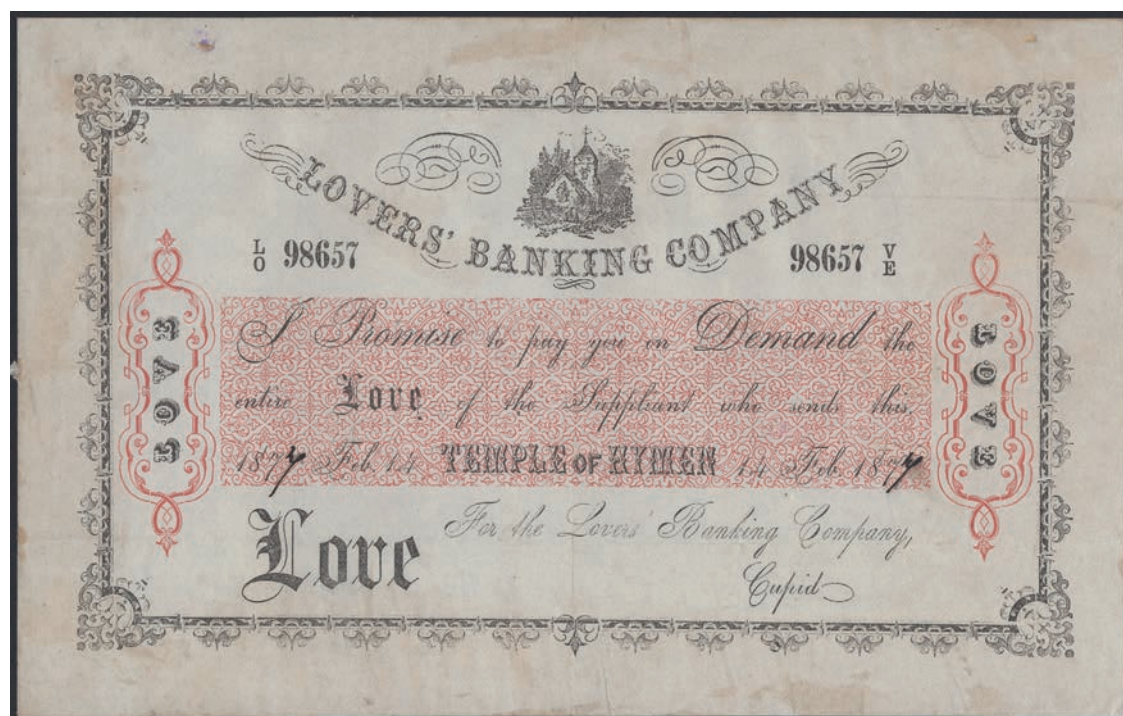 LOVERS' BANKING COMPANY
LO 98657 98657 VE
I Promise to pay you on Demand the
entire Love of the Suppliant who sends this,
1877 Feb. 14 TEMPLE OF HYMEN 14 Feb. 1877
LOVE
LOVE
Love For the Lovers' Banking Company,
Cupid